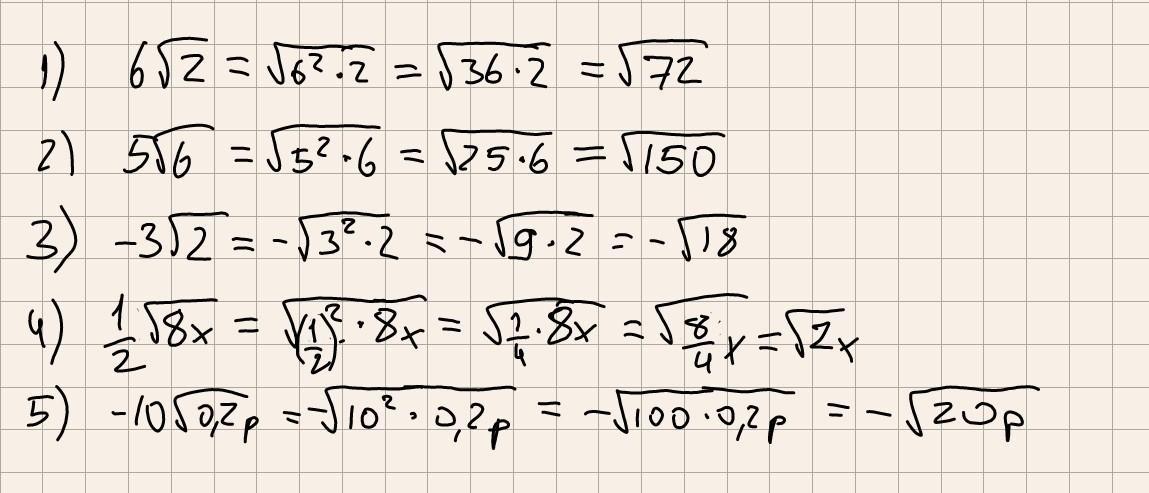 1) 6√2 = √(6² · 2) = √(36 · 2) = √72
2) 5√6 = √(5² · 6) = √(25 · 6) = √150
3) -3√2 = -√(3² · 2) = -√(9 · 2) = -√18
4) 1/2 √(8x) = √((1/2)² · 8x) = √(1/4 · 8x) = √(8/4 x) = √(2x)
5) -10√(0,2p) = -√(10² · 0,2p) = -√(100 · 0,2p) = -√(20p)